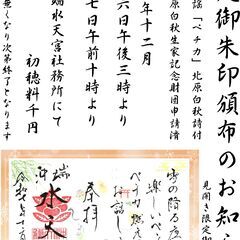 定御朱印頒布のお知ら
見開き限定御
謡「ペチカ」北原白秋請付
北原白秋生家記念財団申請済
年十二月
六日午後三時より
七日午前十時より
端水天宮社務所にて
初穂料千円
無くなり次第終了となります
雪の降る夜は
楽しいペチカ
ペチカ燃えろ
お話し
奉拝
水天